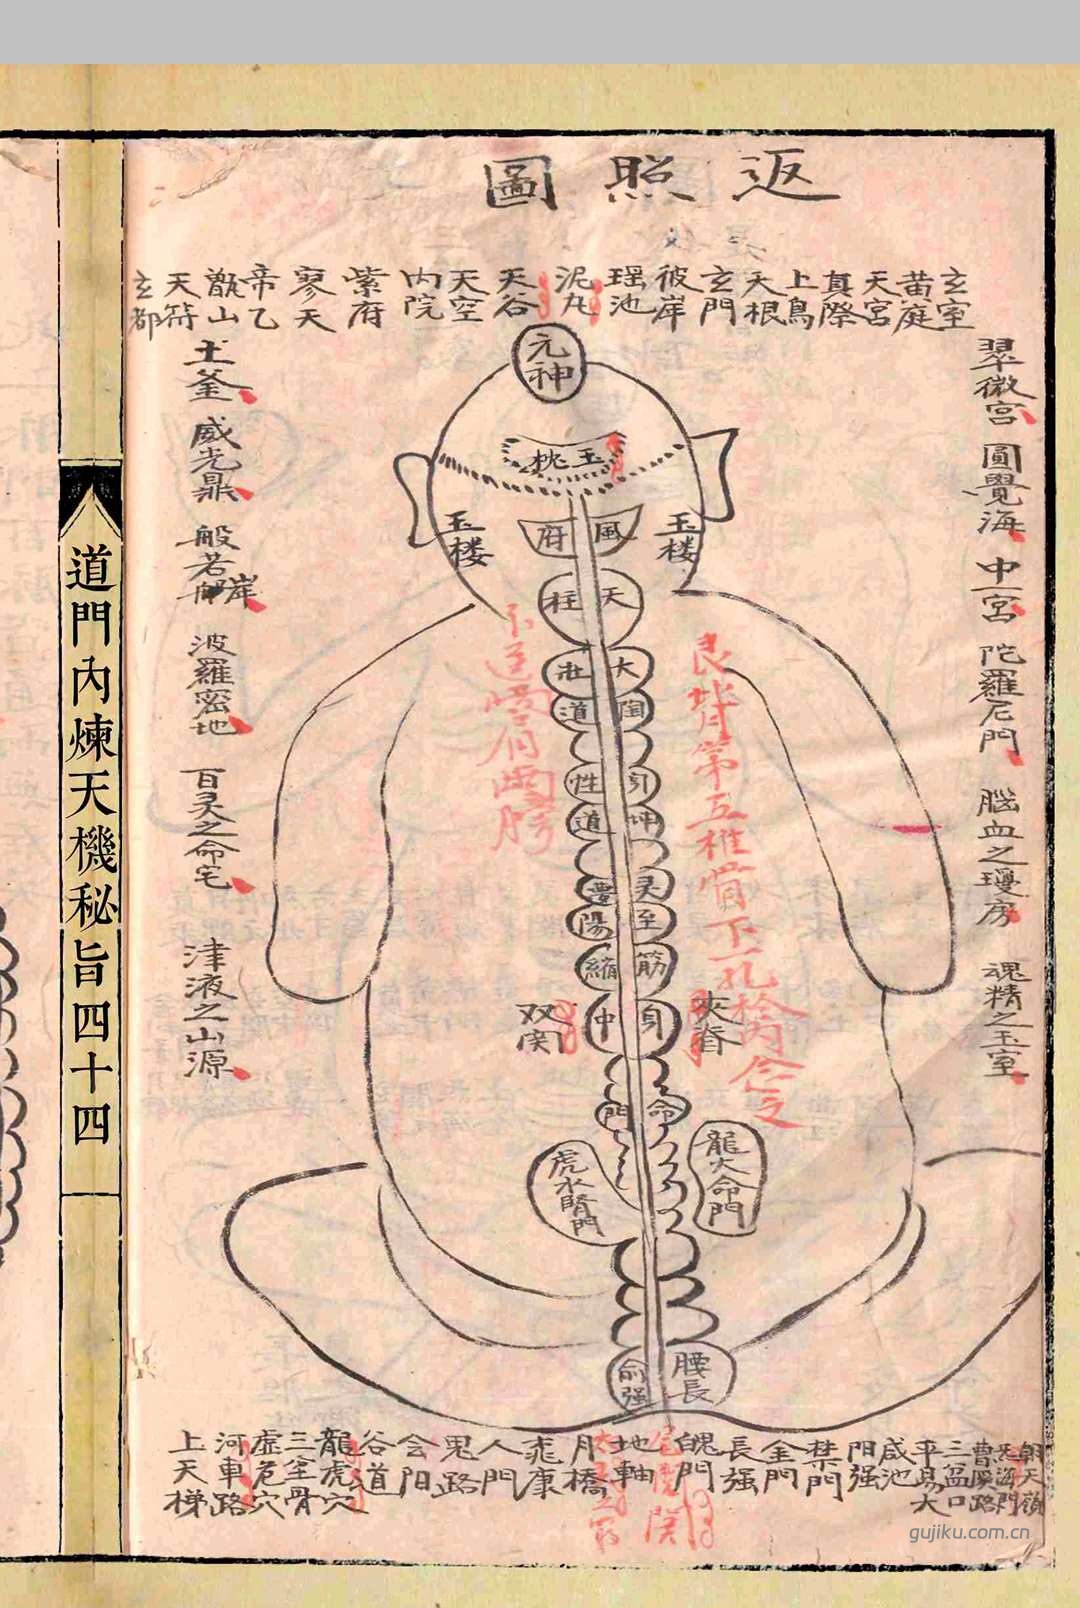 返照圖
玄室
黄庭
天宮
真際
上鳥
天根
玄門
彼岸
瑶池
泥丸
天谷
天空
内院
紫府
寥天
帝乙
甑山
天符
玄都
翠微宮
圓覺海
中一宮
陀羅尼門
腦血之瓊房
魂精之玉室
土釜
威光鼎
般若岸
波羅密地
百灵之命宅
津液之山源
元神
玉枕
風府
玉楼
玉楼
天柱
大壯
陶道
性
道
灵
至陽
筋縮
中
夾脊
双関
命門
龍大命門
虎水腎門
腰俞
長強
艮背第五椎骨下一孔
両膀
朝天嶺
曹溪路
三岔口
平易大
咸池
阳强
禁門
金門
長强
魄門
地軸
月橋
甭康
人門
鬼路
会阳
谷道
龍虎穴
三全骨
虛危穴
河車路
上天梯
道門內煉天機秘旨四十四
gujiku.com.cn